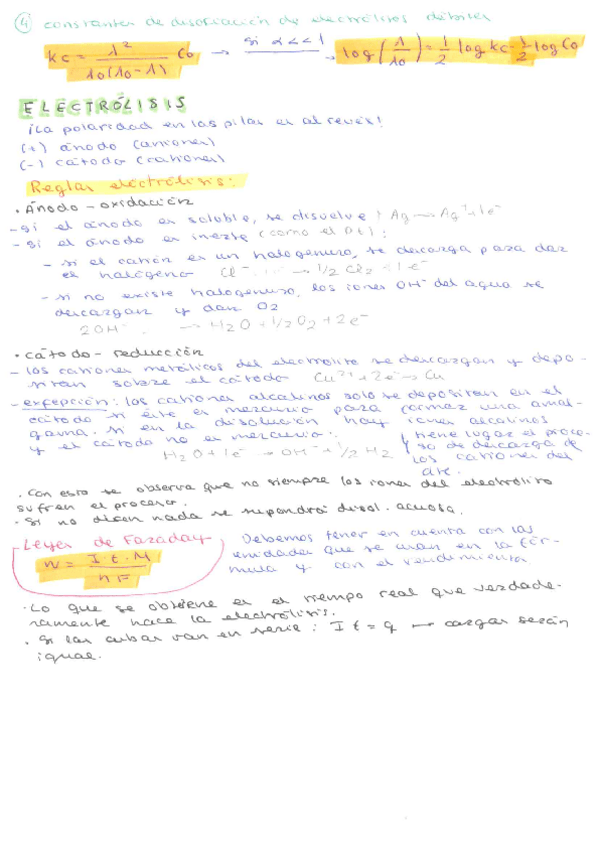 ④ constantes de disociación de electrólitos débiles
Kc = λ² / λ0(λ0-λ) C0 → si α<<<1 → log(λ/λ0) = 1/2 log Kc - 1/2 log C0
ELECTRÓLISIS
¡La polaridad en las pilas es al revés!
(+) ánodo (aniones)
(-) cátodo (cationes)
Reglas electrólisis:
• Ánodo - oxidación
- si el ánodo es soluble, se disuelve: Ag → Ag⁺ + 1e⁻
- si el ánodo es inerte (como el Pt):
- si el catión es un halogenuro, se descarga para dar
el halógeno Cl⁻ ... → 1/2 Cl2 + 1e⁻
- si no existe halogenuro, los iones OH⁻ del agua se
descargan y dan O2
2OH⁻ → H2O + 1/2 O2 + 2e⁻
• cátodo - reducción
- los cationes metálicos del electrolito se descargan y depo-
sitan sobre el cátodo Cu²⁺ + 2e⁻ → Cu
- excepción: los cationes alcalinos solo se depositan en el
cátodo si éste es mercurio para formar una amal-
gama. si en la disolución hay iones alcalinos
y el cátodo no es mercurio: tiene lugar el proce-
H2O + 1e⁻ → OH⁻ + 1/2 H2 so de descarga de
los cationes del
• Con esto se observa que no siempre los iones del electrolito
sufren el proceso.
• Si no dicen nada se supondrá disol. acuosa.
Leyes de Faraday
m = I.t.M / n F
Debemos tener en cuenta con las
unidades que se usan en la fór-
mula y con el rendimiento
• Lo que se obtiene es el tiempo real que verdade-
ramente hace la electrólisis.
• Si las cubas van en serie: I t = q → cargas serán
igual.